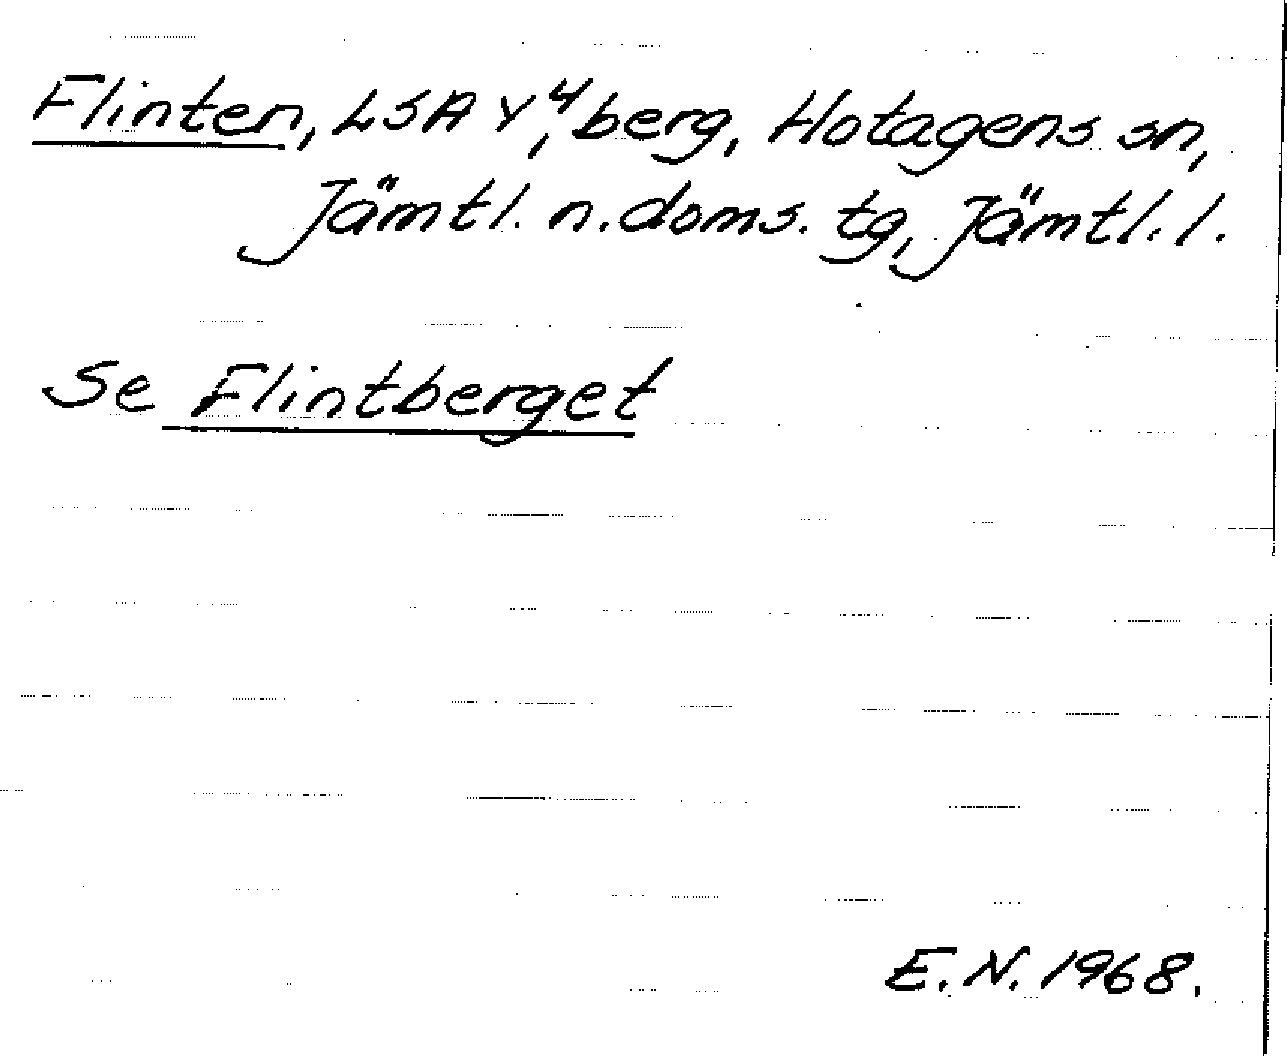 Flinten, LSA Y,4 berg, Hotagens sn,
Jämtl. n. doms. tg, Jämtl. l.
Se Flintberget
E.N. 1968.